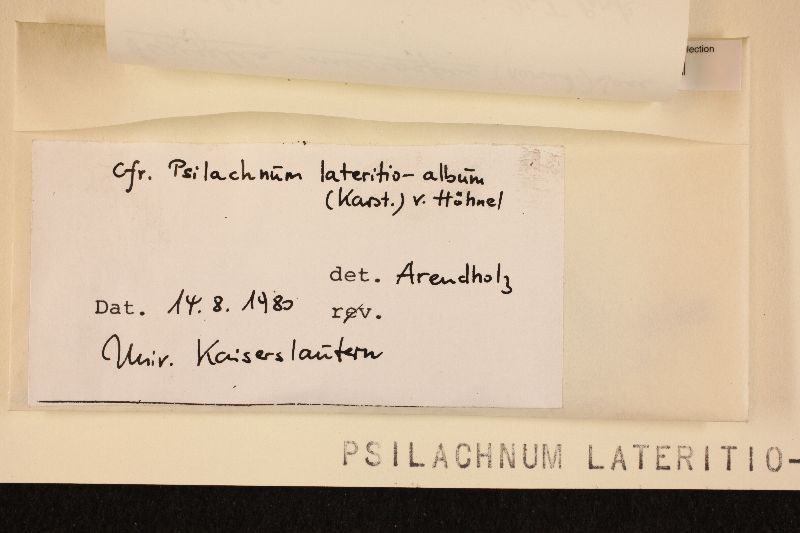 lection
cfr. Psilachnum lateritio-album
(Karst.) v. Höhnel
det. Arendholz
Dat. 14.8.1980 rev.
Univ. Kaiserslautern
PSILACHNUM LATERITIO-